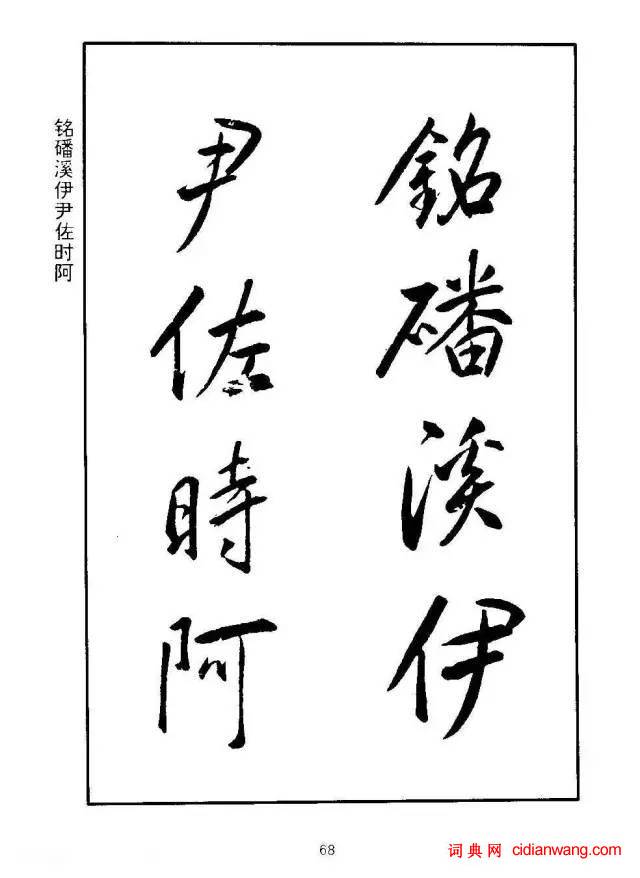 銘磻溪伊
尹佐時阿
铭磻溪伊尹佐时阿
68
词典网 cidianwang.com